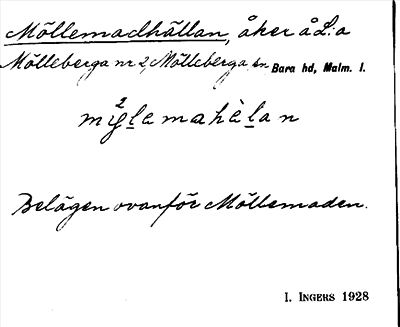 Möllemadhällan, åker å L:a
Mölleberga nr 2, Mölleberga sn Bara hd, Malm. l.
my̆²lemahèlan
Belägen ovanför Möllemaden.
I. INGERS 1928